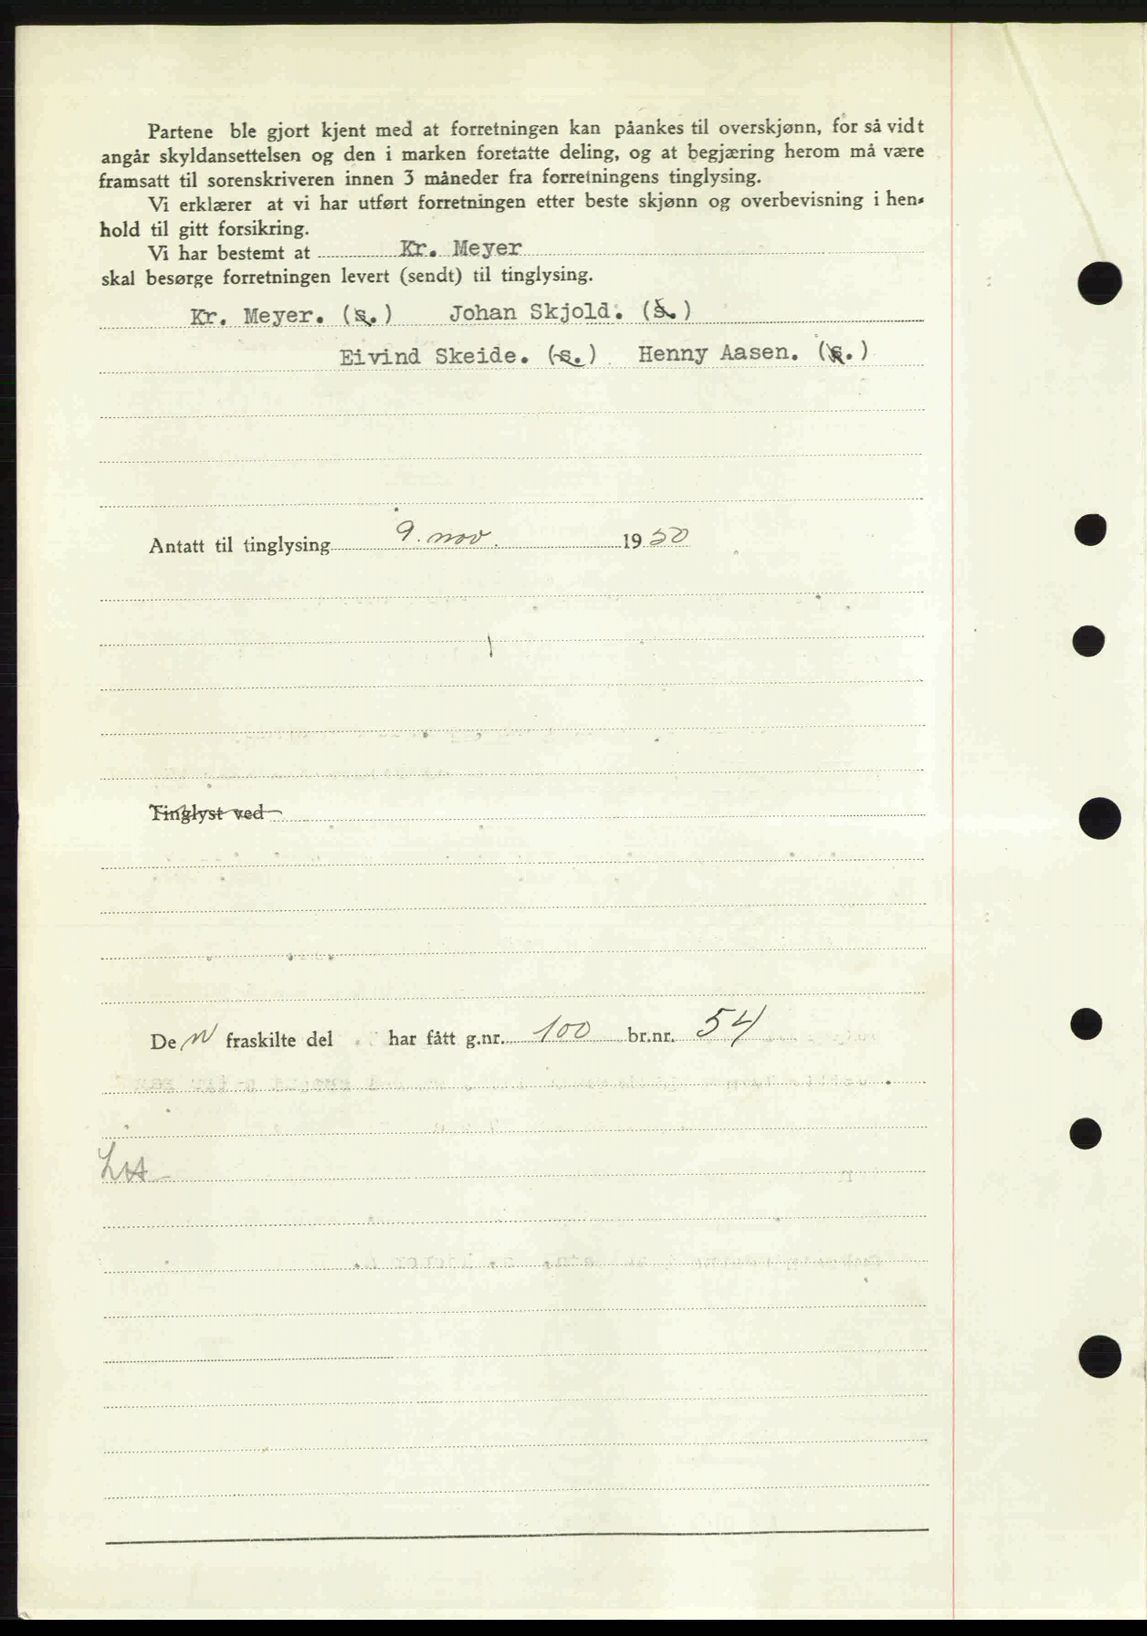 Partene ble gjort kjent med at forretningen kan påankes til overskjønn, for så vidt
angår skyldansettelsen og den i marken foretatte deling, og at begjæring herom må være
framsatt til sorenskriveren innen 3 måneder fra forretningens tinglysing.
Vi erklærer at vi har utført forretningen etter beste skjønn og overbevisning i hen-
hold til gitt forsikring.
Vi har bestemt at Kr. Meyer
skal besørge forretningen levert (sendt) til tinglysing.
Kr. Meyer. (s.) Johan Skjold. (s.)
Eivind Skeide. (s.) Henny Aasen. (s.)
Antatt til tinglysing 9. nov. 1950
Tinglyst ved
Den fraskilte del har fått g.nr. 100 br.nr. 54